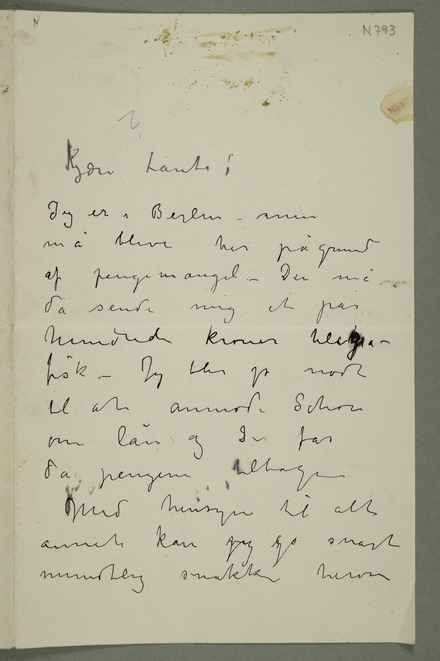 N
N 793
Kjære tante!
Jeg er i Berlin – men
må blive her på grund
af pengemangel – Du må
da sende mig et par
hundrede kroner telegra-
fisk – Jeg blir jo nødt
til at anmode Schou
om lån og Du får
da pengene tilbage
Med hensyn til alt
andet kan jeg jo snart
mundtlig snakke herom